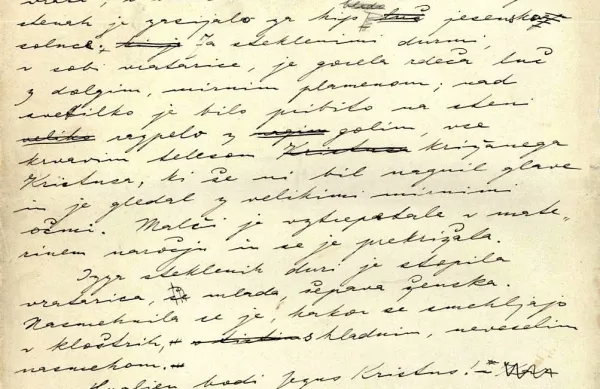 stenah je zasijalo za hip bledo jesensko
solnce; za steklenimi durmi,
v sobi vratarice, je gorela rdeča luč
z dolgim, mirnim plamenom; nad
svetilko je bilo pribito na steni
veliko razpelo z golim, vse
krvavim telesom Kristusa križanega
Kristusa, ki še ni bil nagnil glave
in je gledal z velikimi mirnimi
očmi. Malči je vztrepetala v mate-
rinem naročju in se je prekrižala.
Izza steklenih duri je stopila
vratarica, še mlada, čepava ženska.
Nasmehnila se je, kakor se smehljajo
v kloštrih, s hladnim, neveselim
nasmehom.
bodi Jezus Kristus!